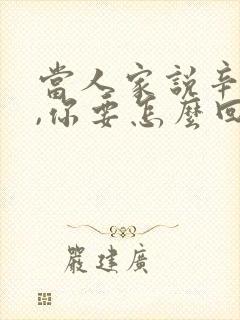 當人家說辛
,你要怎麼回
嚴建廣